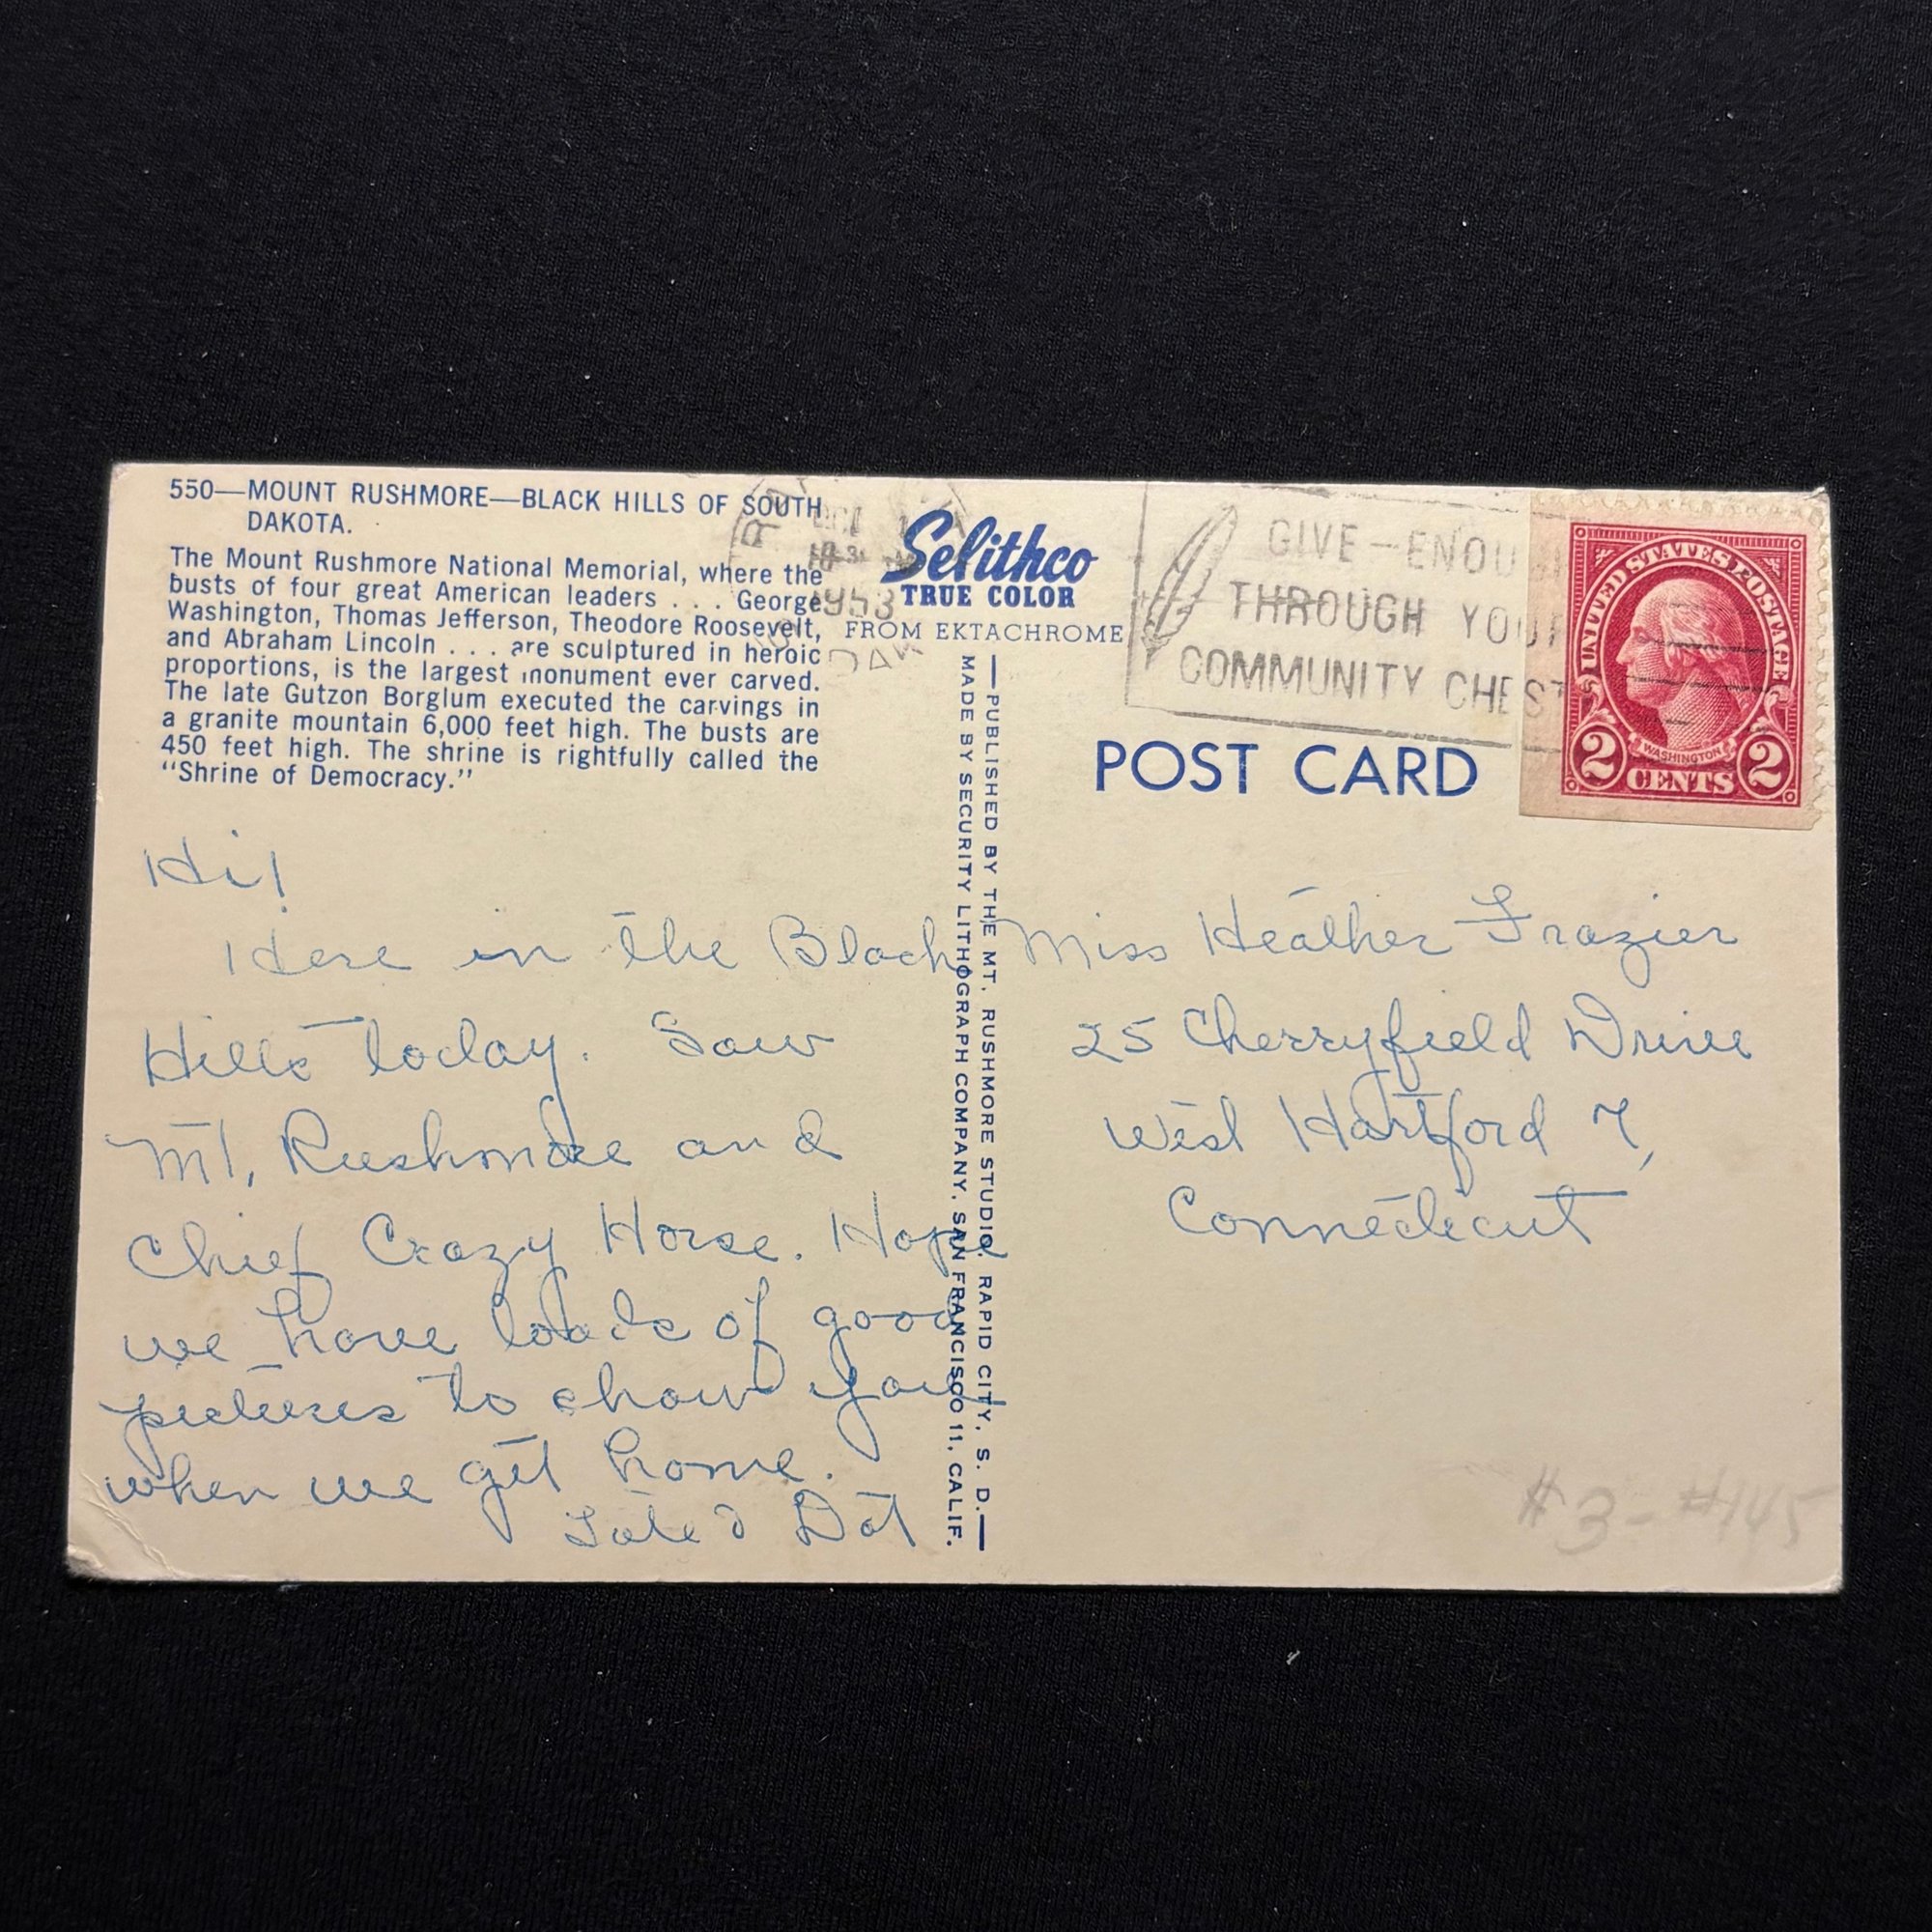 550—MOUNT RUSHMORE—BLACK HILLS OF SOUTH
DAKOTA.
The Mount Rushmore National Memorial, where the
busts of four great American leaders . . . George
Washington, Thomas Jefferson, Theodore Roosevelt,
and Abraham Lincoln . . . are sculptured in heroic
proportions, is the largest monument ever carved.
The late Gutzon Borglum executed the carvings in
a granite mountain 6,000 feet high. The busts are
450 feet high. The shrine is rightfully called the
"Shrine of Democracy."
Hi!
Here in the Black
Hills today. Saw
Mt. Rushmore and
Chief Crazy Horse. Hope
we have loads of good
pictures to show you
when we get home.
Dot
OCT 1
1953
DAK
Selithco
TRUE COLOR
FROM EKTACHROME
—PUBLISHED BY THE MT. RUSHMORE STUDIO, RAPID CITY, S. D.—
MADE BY SECURITY LITHOGRAPH COMPANY, SAN FRANCISCO 11, CALIF.
GIVE—ENOUGH
THROUGH YOUR
COMMUNITY CHEST
UNITED STATES POSTAGE
WASHINGTON
2 CENTS 2
POST CARD
Miss Heather Frazier
25 Cherryfield Drive
West Hartford 7,
Connecticut
#3-#145